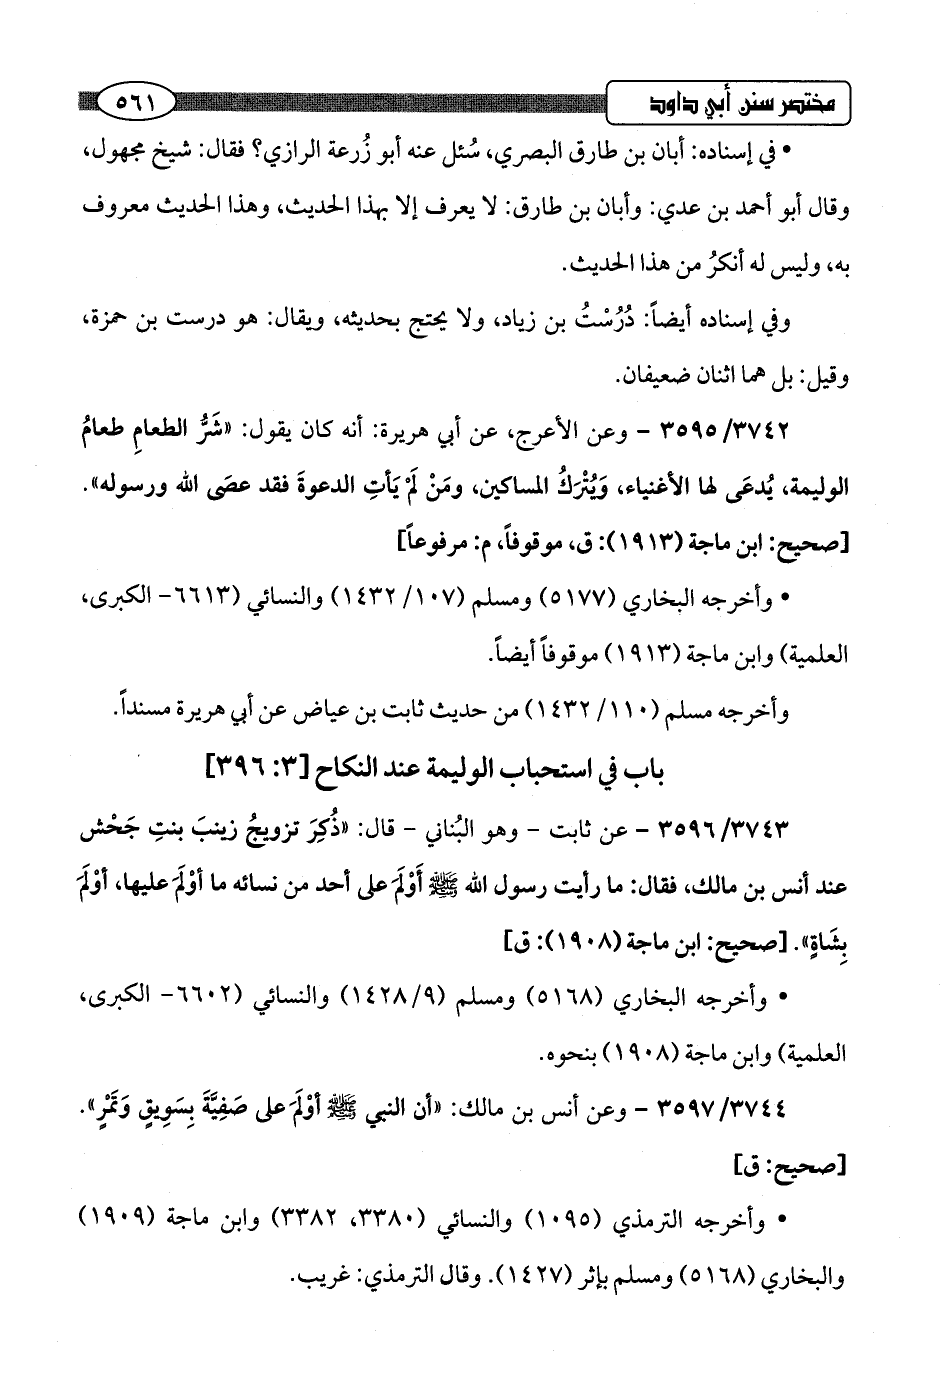 مختصر سنن أبي داود
٥٦١
• في إسناده: أبان بن طارق البصري، سُئل عنه أبو زُرعة الرازي؟ فقال: شيخ مجهول،
وقال أبو أحمد بن عدي: وأبان بن طارق: لا يعرف إلا بهذا الحديث، وهذا الحديث معروف
به، وليس له أنكرُ من هذا الحديث.
وفي إسناده أيضاً: دُرُسْتُ بن زياد، ولا يحتج بحديثه، ويقال: هو درست بن حمزة،
وقيل: بل هما اثنان ضعيفان.
٣٥٩٥/٣٧٤٢ - وعن الأعرج، عن أبي هريرة: أنه كان يقول: «شَرُّ الطعامِ طعامُ
الوليمة، يُدعَى لها الأغنياء، وَيُتْرَكُ المساكين، ومَنْ لَمْ يَأتِ الدعوةَ فقد عصَى الله ورسوله».
[صحيح: ابن ماجة (١٩١٣): ق، موقوفاً، م: مرفوعاً]
• وأخرجه البخاري (٥١٧٧) ومسلم (١٤٣٢/١٠٧) والنسائي (٦٦١٣- الكبرى،
العلمية) وابن ماجة (١٩١٣) موقوفاً أيضاً.
وأخرجه مسلم (١٤٣٢/١١٠) من حديث ثابت بن عياض عن أبي هريرة مسنداً.
باب في استحباب الوليمة عند النكاح [٣: ٣٩٦]
٣٥٩٦/٣٧٤٣ - عن ثابت - وهو البُناني - قال: «ذُكِرَ تزويجُ زينبَ بنتِ جَحْش
عند أنس بن مالك، فقال: ما رأيت رسول الله ﷺ أَوْلَمَ على أحد من نسائه ما أوْلَمَ عليها، أوْلَمَ
بِشَاةٍ». [صحيح: ابن ماجة (١٩٠٨): ق]
• وأخرجه البخاري (٥١٦٨) ومسلم (١٤٢٨/٩) والنسائي (٦٦٠٢- الكبرى،
العلمية) وابن ماجة (١٩٠٨) بنحوه.
٣٥٩٧/٣٧٤٤ - وعن أنس بن مالك: «أن النبي ﷺ أوْلَمَ على صَفِيَّةَ بِسَوِيقٍ وَتَمْرٍ».
[صحيح: ق]
• وأخرجه الترمذي (١٠٩٥) والنسائي (٣٣٨٠، ٣٣٨٢) وابن ماجة (١٩٠٩)
والبخاري (٥١٦٨) ومسلم بإثر (١٤٢٧). وقال الترمذي: غريب.